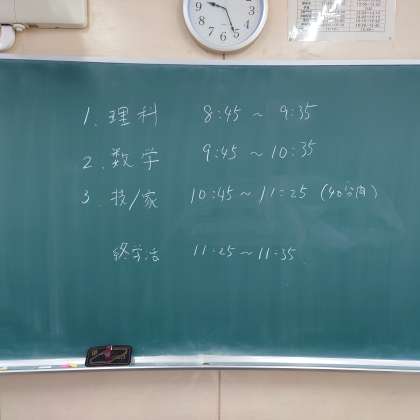 1. 理科 8:45 ~ 9:35
2. 数学 9:45 ~ 10:35
3. 技/家 10:45 ~ 11:25 (40分間)
終学活 11:25 ~ 11:35